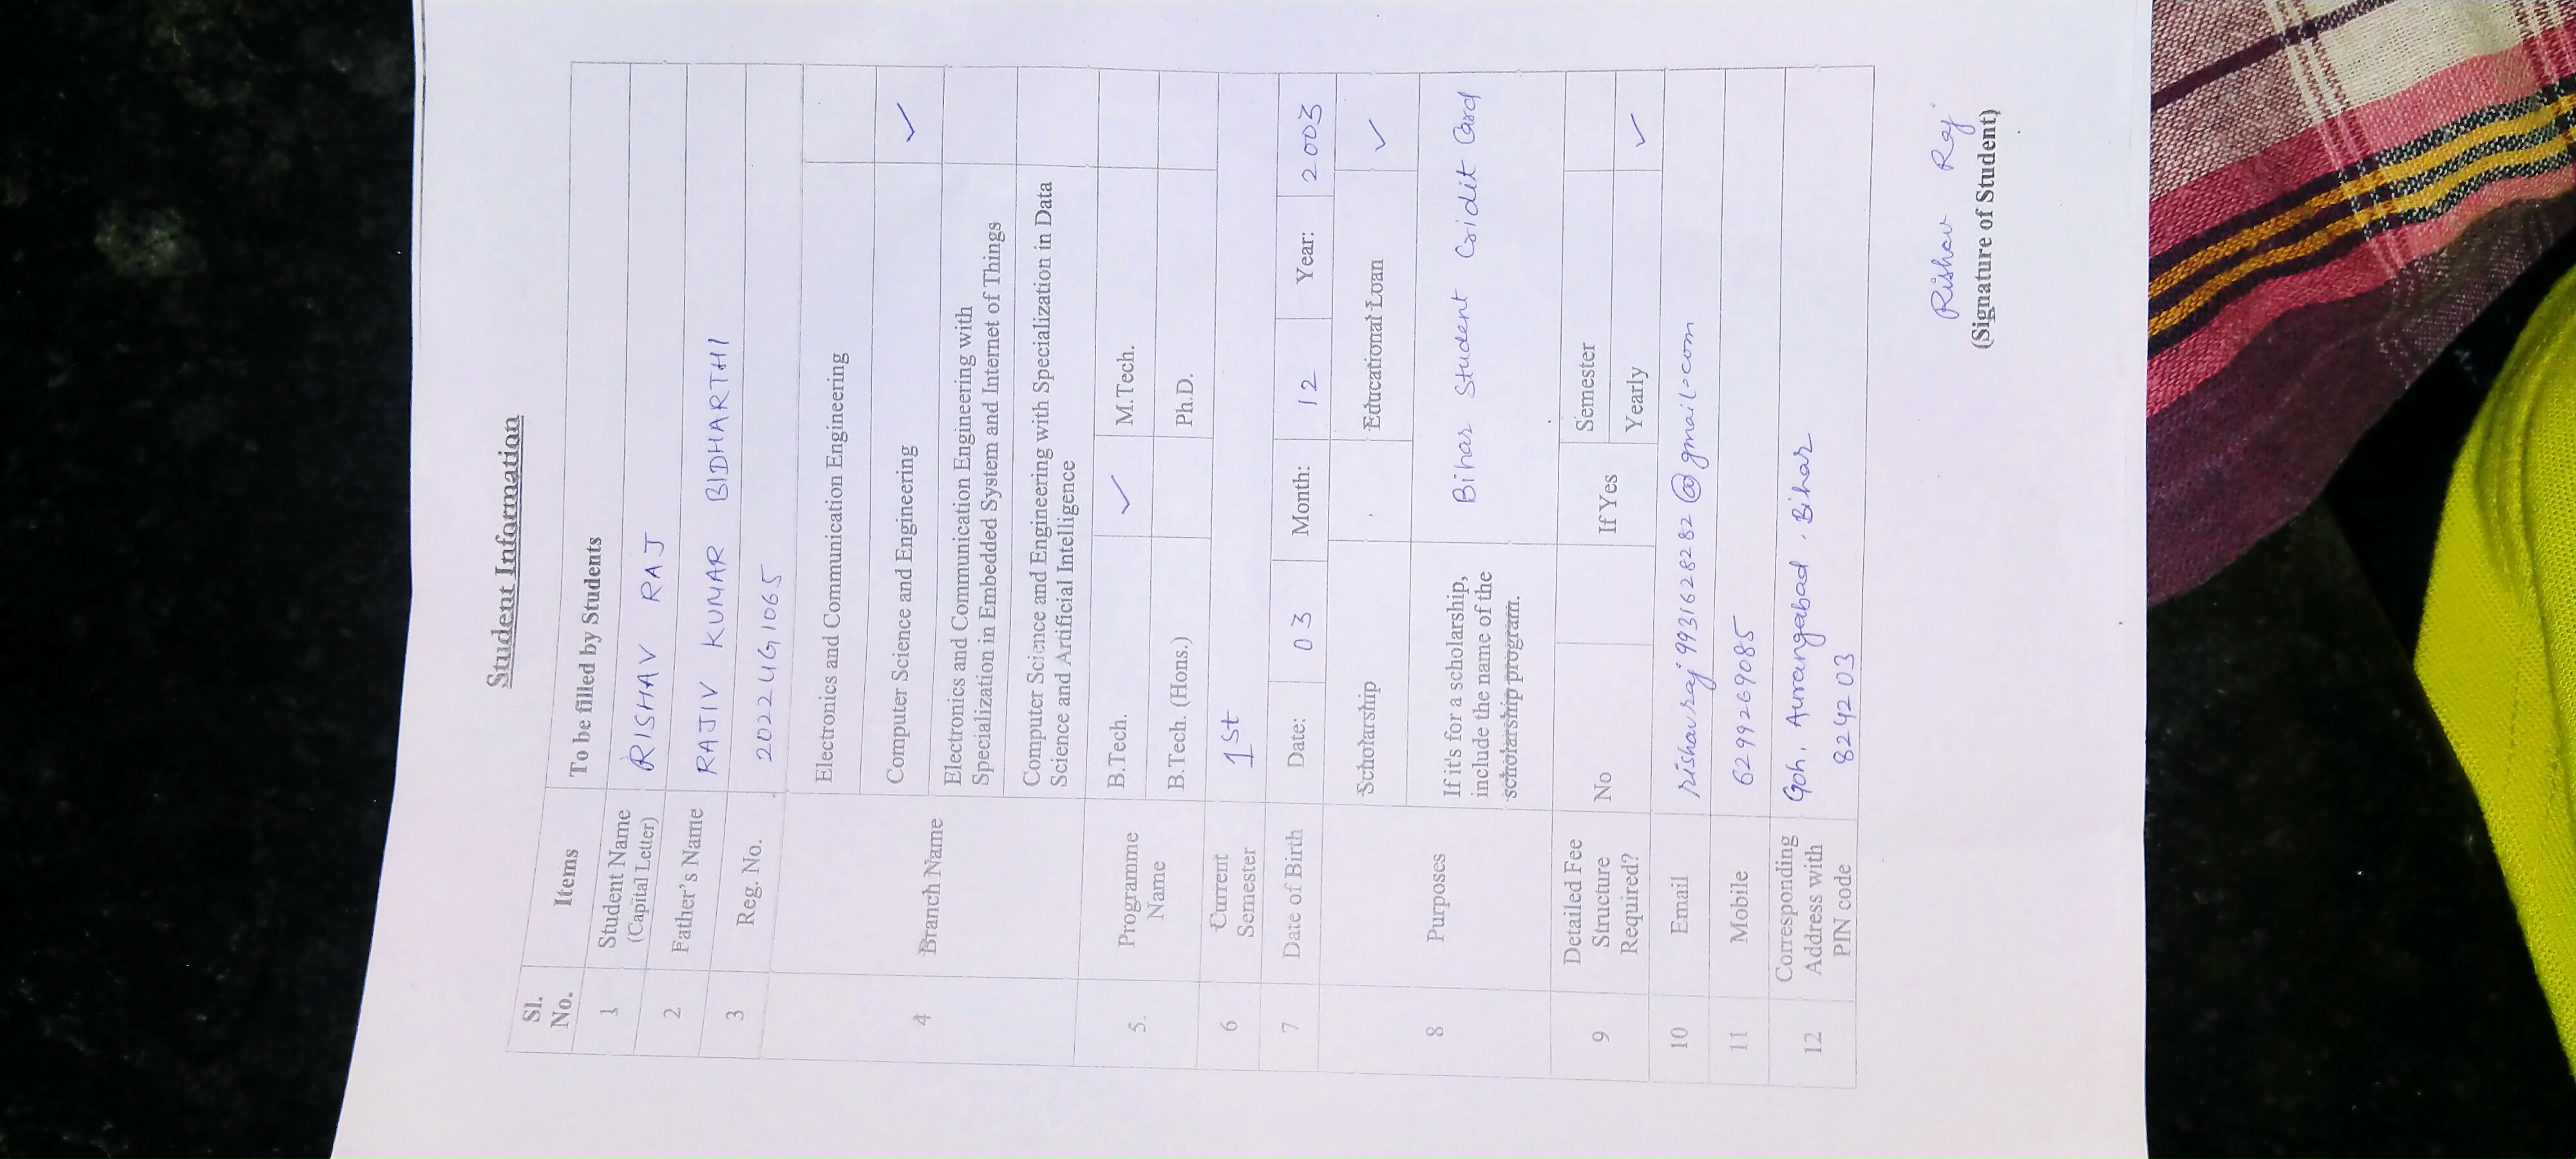 Student Information
Sl. No. Items To be filled by Students
1 Student Name (Capital Letter) RISHAV RAJ
2 Father's Name RAJIV KUMAR BIDHARTHI
3 Reg. No. 2022UG1065
4 Branch Name
Electronics and Communication Engineering
Computer Science and Engineering ✓
Electronics and Communication Engineering with
Specialization in Embedded System and Internet of Things
Computer Science and Engineering with Specialization in Data
Science and Artificial Intelligence
5. Programme Name
B.Tech. ✓ M.Tech.
B.Tech. (Hons.) Ph.D.
6 Current Semester 1st
7 Date of Birth Date: 03 Month: 12 Year: 2003
8 Purposes
Scholarship Educational Loan ✓
If it's for a scholarship,
include the name of the
scholarship program.
Bihar Student Cridit Card
9 Detailed Fee Structure Required?
No If Yes
Semester
Yearly ✓
10 Email rishavraj9931628282@gmail.com
11 Mobile 6299269085
12 Corresponding Address with PIN code
Goh, Aurangabad, Bihar
824203
Rishav Raj
(Signature of Student)